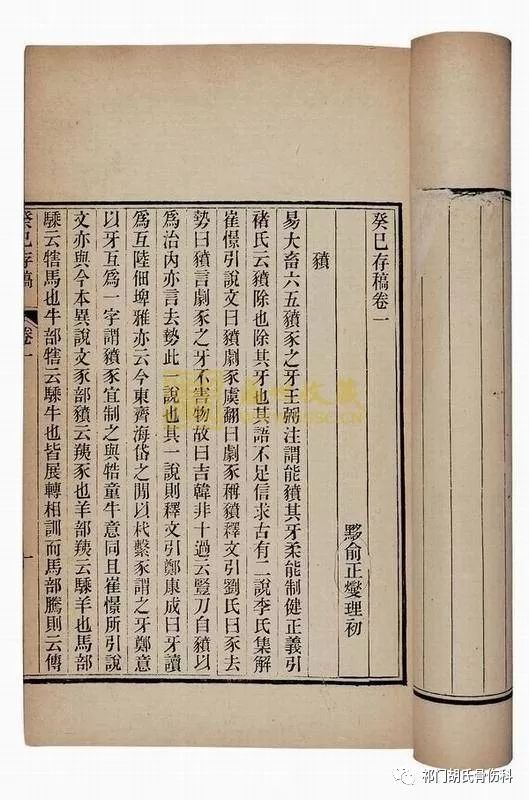 癸巳存稿卷一
黟俞正燮理初
豶
易大畜六五豶豕之牙王弼注謂能豶其牙柔能制健正義引
褚氏云豶除也除其牙也其語不足信求古有二說李氏集解
崔憬引說文曰豶劇豕虞翻曰劇豕稱豶釋文引劉氏曰豕去
勢曰豶言劇豕之牙不害物故曰吉韓非十過云豎刀自豶以
為治內亦言去勢此一說也其一說則釋文引鄭康成曰牙讀
為互陸佃埤雅亦云今東齊海岱之閒以杙繫豕謂之牙鄭意
以牙互為一字謂豶豕宜制之與牿童牛意同且崔憬所引說
文亦與今本異說文豕部豶云羠豕也羊部羠云騬羊也馬部
騬云犗馬也牛部犗云騬牛也皆展轉相訓而馬部騰則云傳
癸巳存稿
卷一
一
祁门胡氏骨伤科